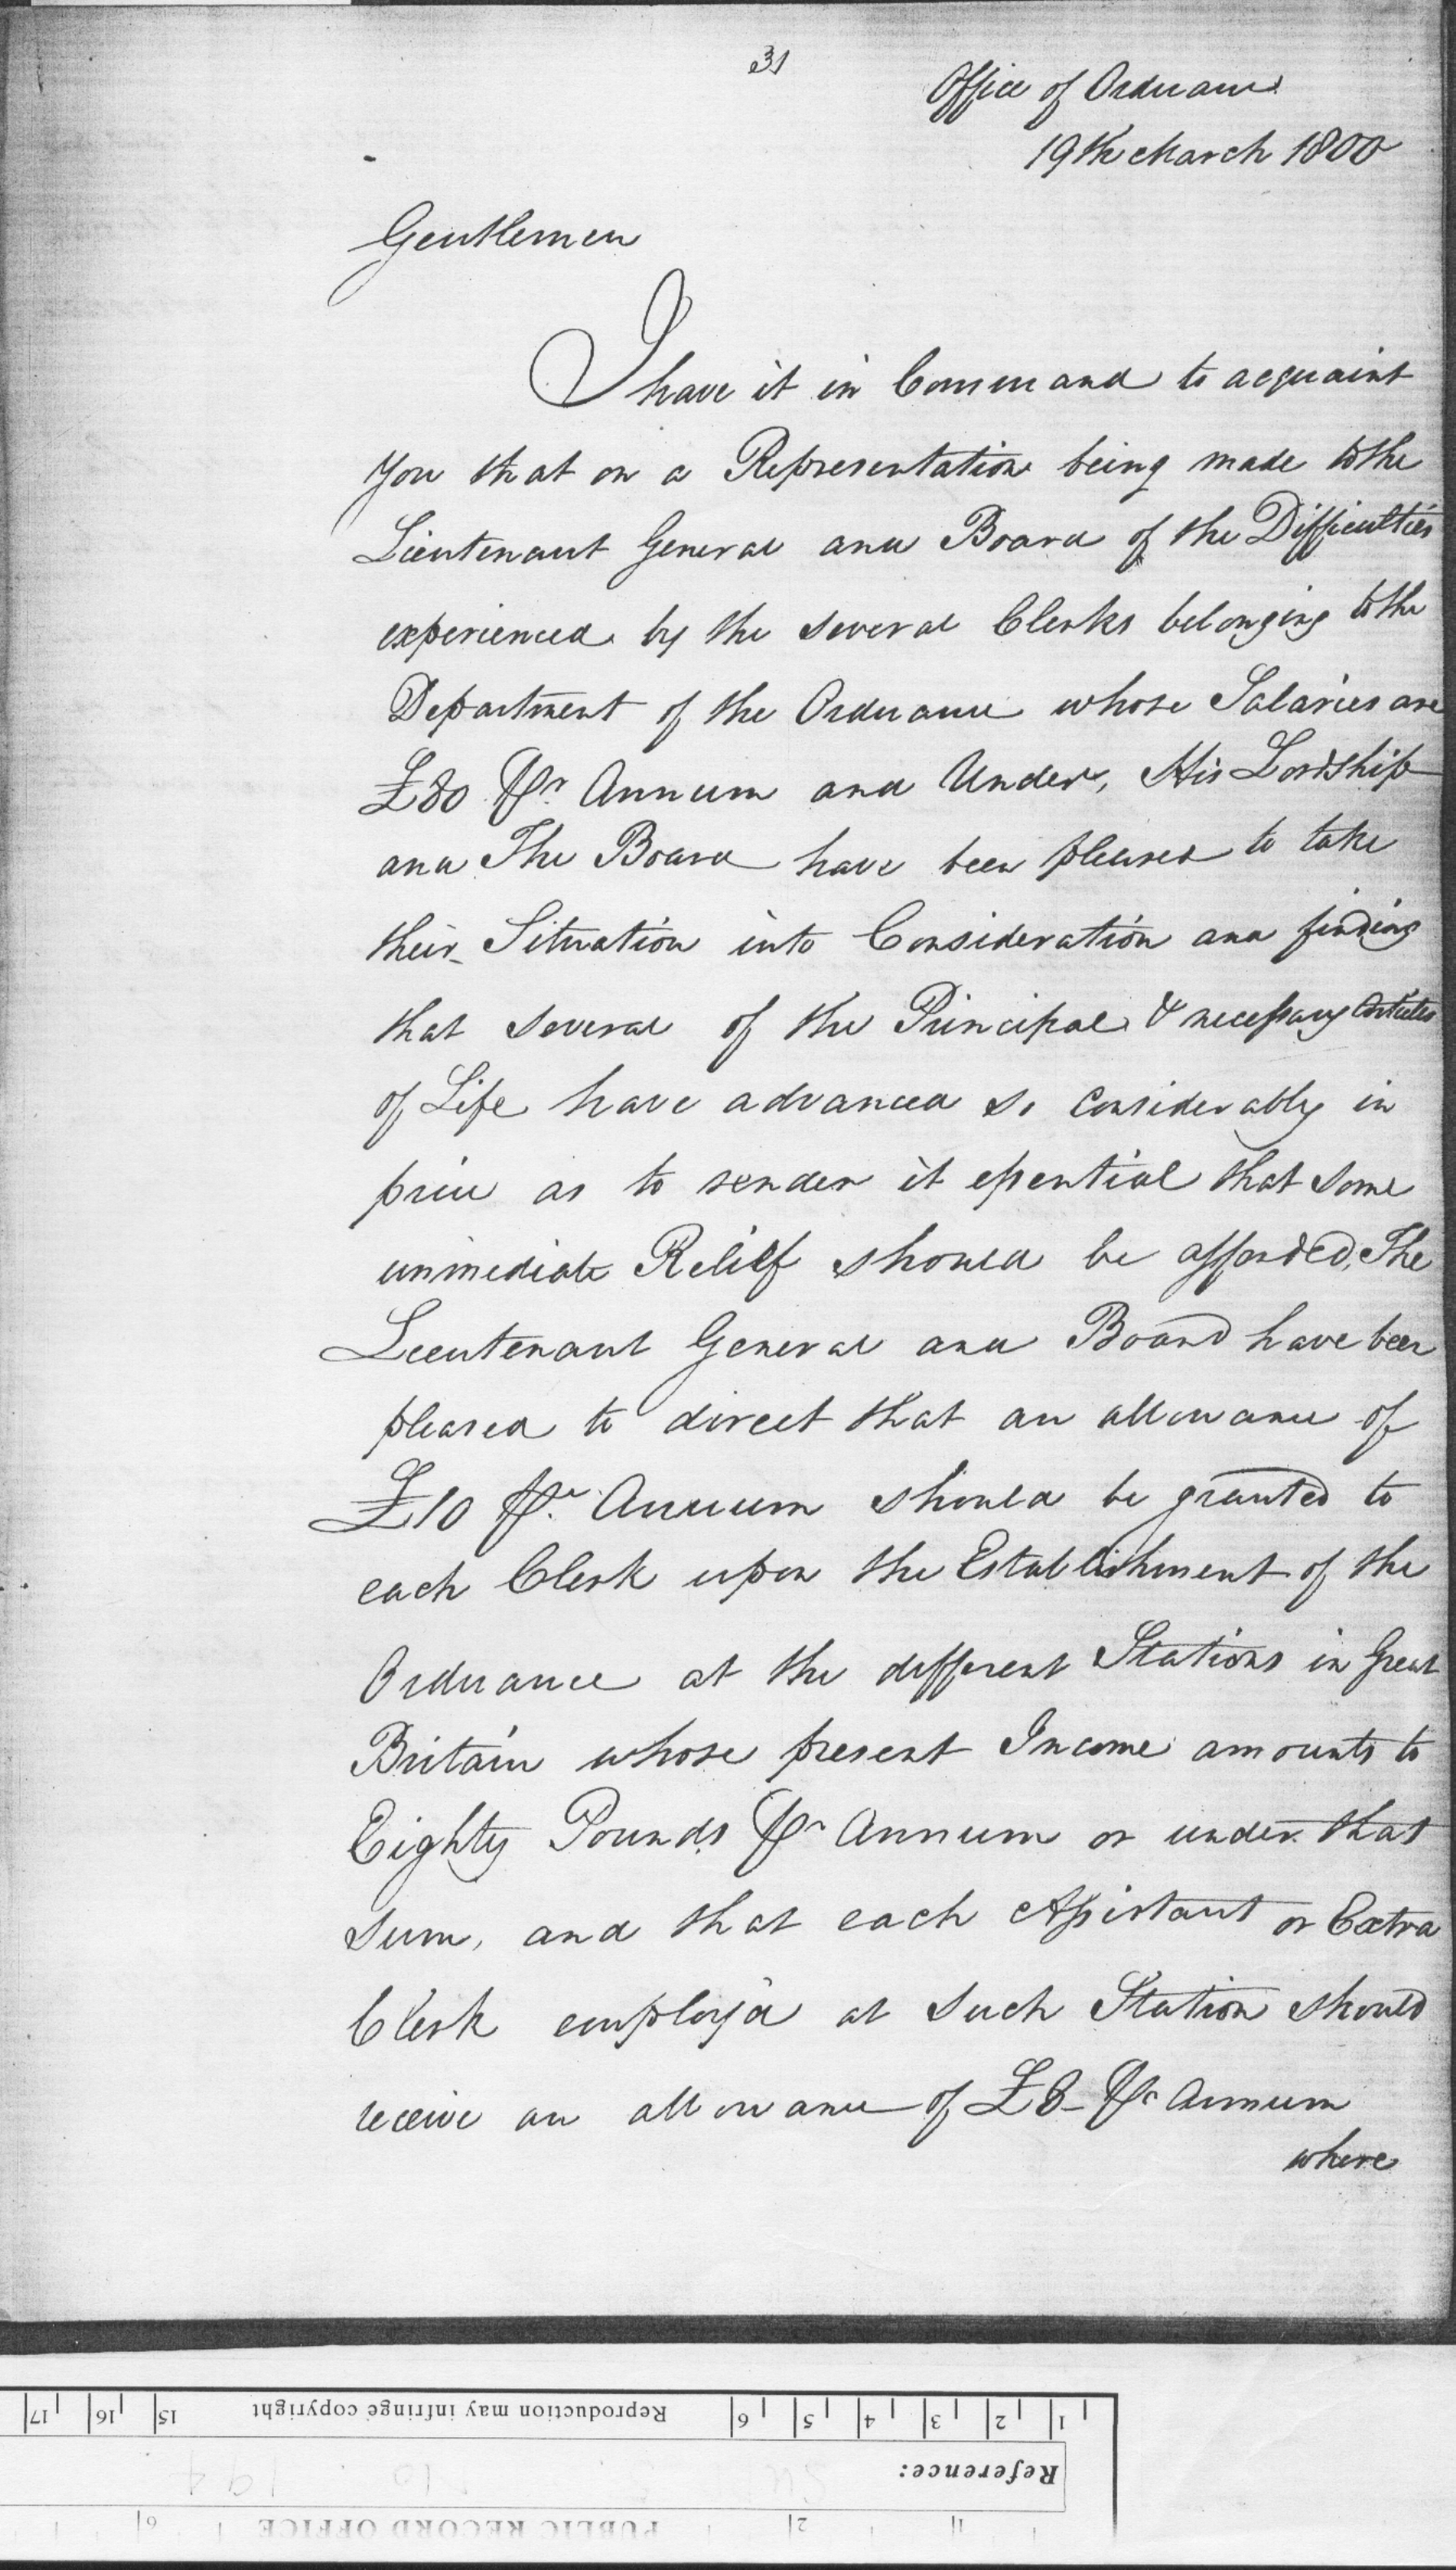 31
Office of Ordnance
19th March 1800
Gentlemen
I have it in Command to acquaint
you that on a Representation being made to the
Lieutenant General and Board of the Difficulties
experienced by the several Clerks belonging to the
Department of the Ordnance whose Salaries are
£80 Pr. Annum and Under, His Lordship
and The Board have been pleased to take
their Situation into Consideration and finding
that several of the Principal & necessary Articles
of Life have advanced so considerably in
price as to render it essential that some
immediate Relief should be afforded, The
Lieutenant General and Board have been
pleased to direct that an allowance of
£10 Pr. Annum should be granted to
each Clerk upon the Establishment of the
Ordnance at the different Stations in Great
Britain whose present Income amounts to
Eighty Pounds Pr Annum or under that
Sum, and that each Assistant or Extra
Clerk employ'd at such Station should
receive an allowance of £8 - Pr Annum
where
17 16 15 Reproduction may infringe copyright 6 5 4 3 2 1
Reference:
PUBLIC RECORD OFFICE